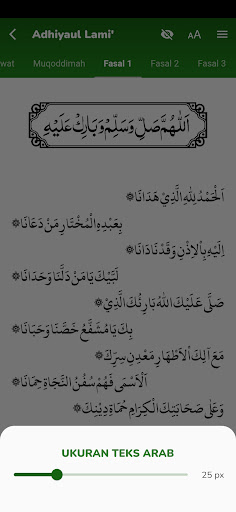 Adhiyaul Lami'
AA
wat Muqoddimah Fasal 1 Fasal 2 Fasal 3
اَللّٰهُمَّ صَلِّ وَسَلِّمْ وَبَارِكْ عَلَيْهِ
اَلْحَمْدُ لِلّٰهِ الَّذِيْ هَدَانَا ۞
بِعَبْدِهِ الْمُخْتَارِ مَنْ دَعَانَا ۞
اِلَيْهِ بِالْاِذْنِ وَقَدْ نَادَانَا ۞
لَبَّيْكَ يَا مَنْ دَلَّنَا وَحَدَانَا ۞
صَلَّى عَلَيْكَ اللهُ بَارِئُكَ الَّذِيْ ۞
بِكَ يَا مُشَفَّعُ خَصَّنَا وَحَبَانَا ۞
مَعَ اٰلِكَ الْاَطْهَارِ مَعْدِنِ سِرِّكَ ۞
الْاَسْمٰى فَهُمْ سُفُنُ النَّجَاةِ حِمَانَا ۞
وَعَلٰى صَحَابَتِكَ الْكِرَامِ حُمَاةِ دِيْنِكَ ۞
UKURAN TEKS ARAB
25 px